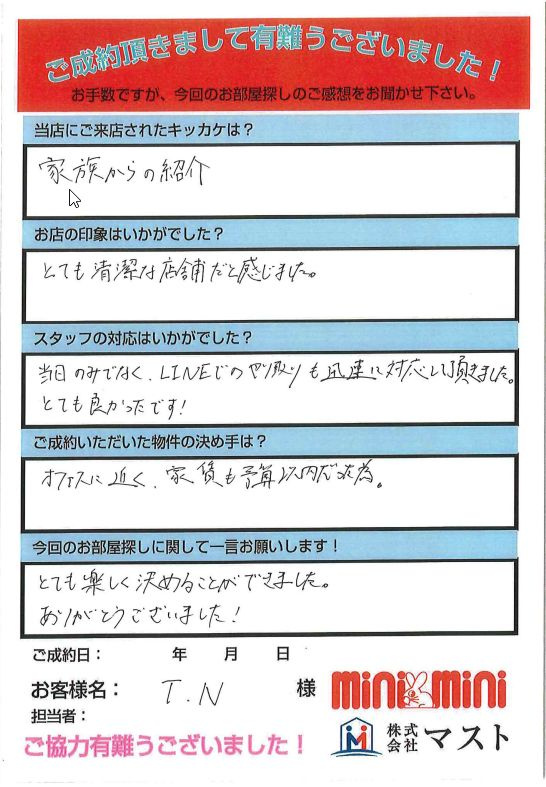 ご成約頂きまして有難うございました!
お手数ですが、今回のお部屋探しのご感想をお聞かせ下さい。
当店にご来店されたキッカケは?
家族からの紹介
お店の印象はいかがでした?
とても清潔な店舗だと感じました。
スタッフの対応はいかがでした?
当日のみでなく、LINEでのやり取りも迅速に対応して頂きました。
とても良かったです!
ご成約いただいた物件の決め手は?
オフィスに近く、家賃も予算以内だった為。
今回のお部屋探しに関して一言お願いします!
とても楽しく決めることができました。
ありがとうございました!
ご成約日: 年 月 日
お客様名: T.N 様
minimini
担当者:
株式会社マスト
ご協力有難うございました!